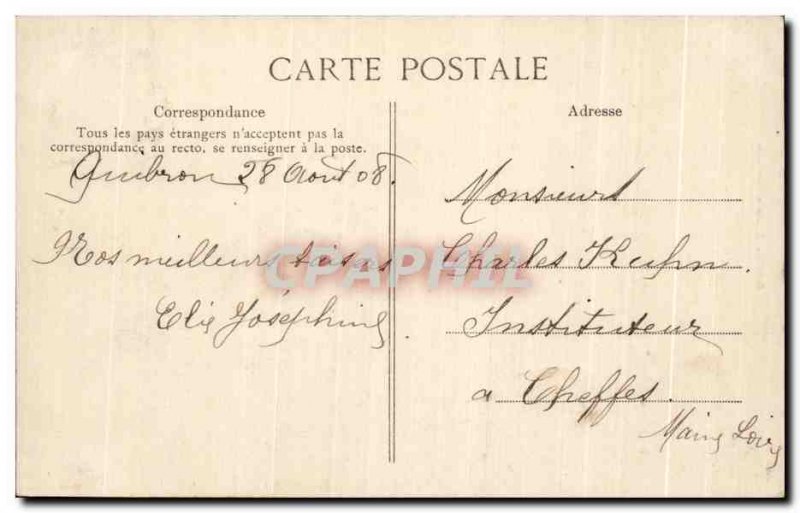 CARTE POSTALE
Correspondance
Tous les pays étrangers n'acceptent pas la
correspondance au recto, se renseigner à la poste.
Quibron 28 Aout 08.
Nos meilleurs
Elie Joséphine
Adresse
Monsieur
Charles Kuhn.
Instituteur
a Cheffes.
Maine Loire
CPAPHIL